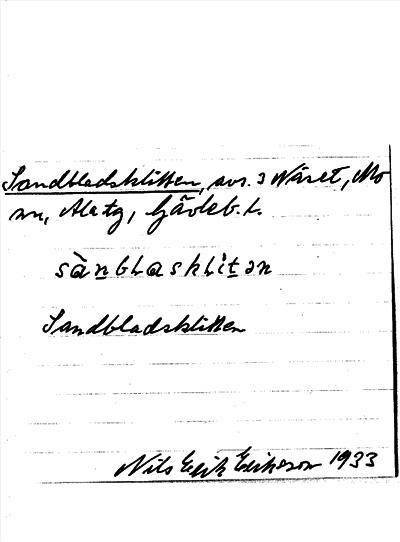 Sandbladsklitten, avs. 3 Näset, Mo
sn, Ala tg, Gävleb. l.
sànblasklìtən
Sandbladsklitten
Nils Erik Erikson 1933